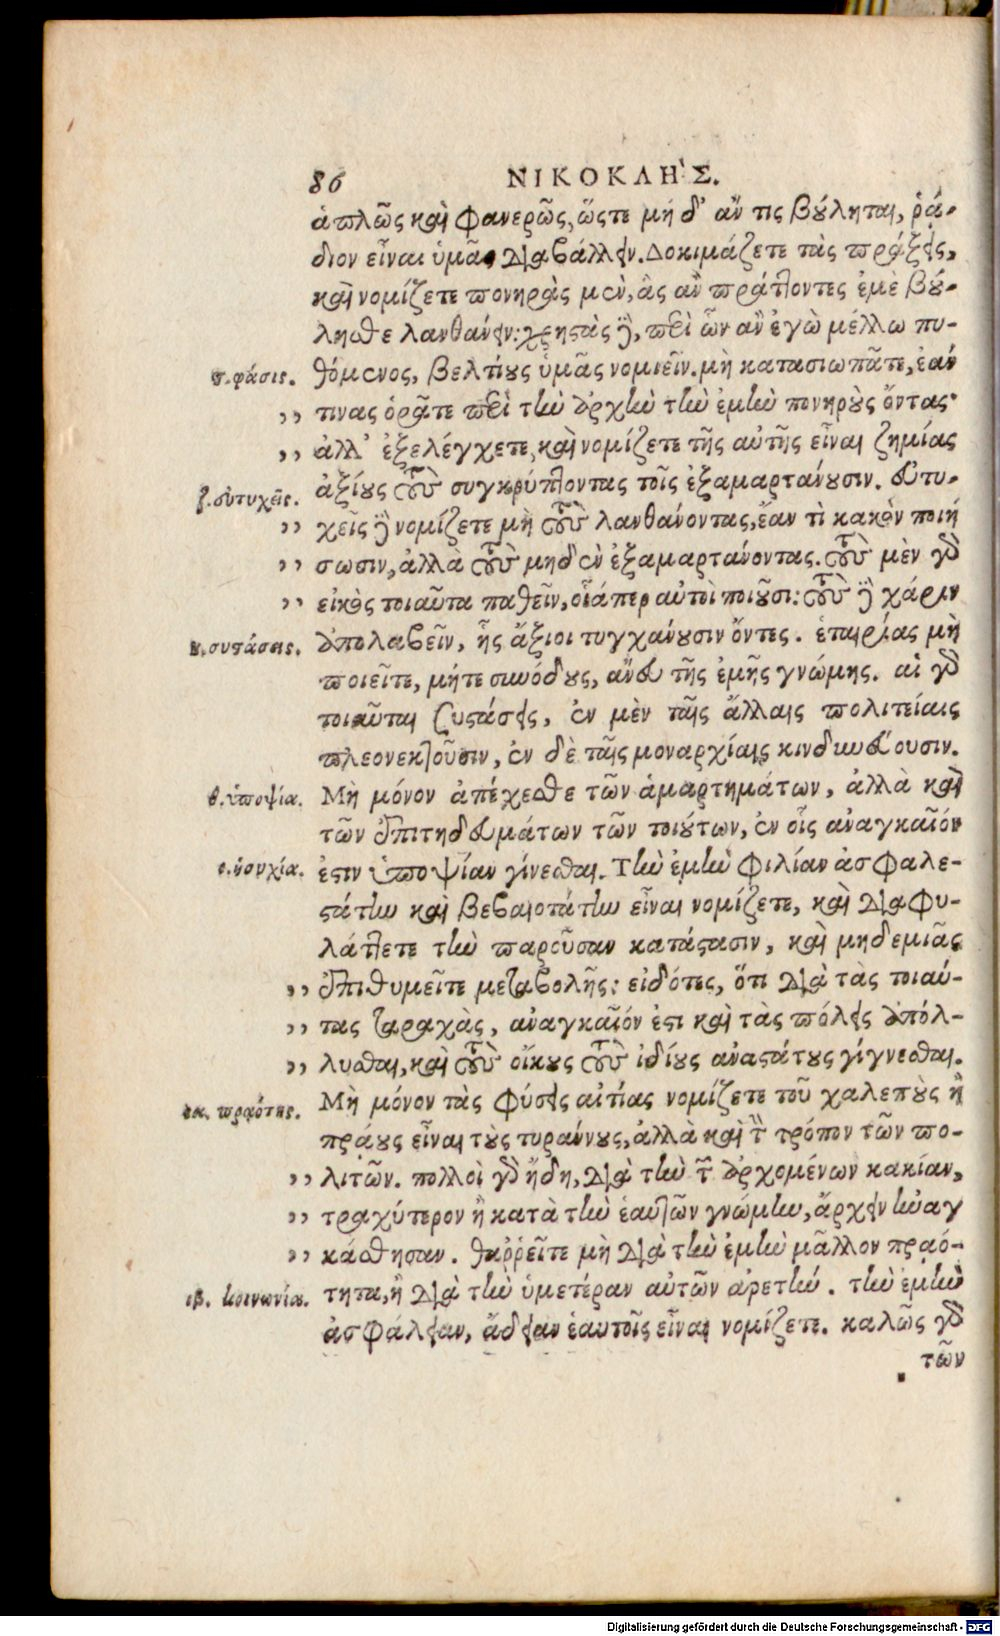 86 ΝΙΚΟΚΛΗ῀Σ.
ἁπλῶς καὶ φανερῶς, ὥστε μὴ δ’ ἂν τις βούληται, ῥᾴ-
διον εἶναι ὑμᾶς διαβάλλειν. Δοκιμάζετε τὰς πράξεις,
καὶ νομίζετε πονηρὰς μὲν, ἃς ἂν πράττοντες ἐμὲ βού-
λησθε λανθάνειν: χρηστὰς δὲ, περὶ ὧν ἂν ἐγὼ μέλλω πυ-
θόμενος, βελτίους ὑμᾶς νομιεῖν. μὴ κατασιωπᾶτε, ἐάν
τινας ὁρᾶτε περὶ τὴν ἀρχὴν τὴν ἐμὴν πονηροὺς ὄντας·
ἀλλ’ ἐξελέγχετε, καὶ νομίζετε τῆς αὐτῆς εἶναι ζημίας
ζ. εὐτυχεῖς. ἀξίους τοὺς συγκρύπτοντας τοῖς ἐξαμαρτάνουσιν. εὐτυ-
,, χεῖς δὲ νομίζετε μὴ τοὺς λανθάνοντας, ἔαν τὶ κακὸν ποιή
,, σωσιν, ἀλλὰ τοὺς μηδὲν ἐξαμαρτάνοντας. τοὺς μὲν γὰρ
,, εἰκὸς τοιαῦτα παθεῖν, οἷά περ αὐτοὶ ποιοῦσι: τοὺς δὲ χάριν
η. συστάσεις. ἀπολαβεῖν, ἧς ἄξιοι τυγχάνουσιν ὄντες. ἑταιρίας μὴ
ποιεῖτε, μήτε συνόδους, ἄνευ τῆς ἐμῆς γνώμης. αἱ γὰρ
τοιαῦται συστάσεις, ἐν μὲν ταῖς ἄλλαις πολιτείαις
πλεονεκτοῦσιν, ἐν δὲ ταῖς μοναρχίαις κινδυνεύουσιν.
θ. ὑποψία. Μὴ μόνον ἀπέχεσθε τῶν ἁμαρτημάτων, ἀλλὰ καὶ
τῶν ἐπιτηδευμάτων τῶν τοιούτων, ἐν οἷς ἀναγκαῖόν
ι. ἡσυχία. ἐστιν ὑποψίαν γίνεσθαι. Τὴν ἐμὴν φιλίαν ἀσφαλε-
στάτην καὶ βεβαιοτάτην εἶναι νομίζετε, καὶ διαφυ-
λάττετε τὴν παροῦσαν κατάστασιν, καὶ μηδεμιᾶς
,, ἐπιθυμεῖτε μεταβολῆς: εἰδότες, ὅτι διὰ τὰς τοιαύ-
,, τας ταραχὰς, ἀναγκαῖόν ἐστι καὶ τὰς πόλεις ἀπόλ-
,, λυσθαι, καὶ τοὺς οἴκους τοὺς ἰδίους ἀναστάτους γίγνεσθαι.
ια. πραότης. Μὴ μόνον τὰς φύσεις αἰτίας νομίζετε τοῦ χαλεποὺς ἢ
πράους εἶναι τοὺς τυράννους, ἀλλὰ καὶ τὸν τρόπον τῶν πο-
,, λιτῶν. πολλοὶ γὰρ ἤδη, διὰ τὴν τῶν ἀρχομένων κακίαν,
,, τραχύτερον ἢ κατὰ τὴν ἑαυτῶν γνώμην, ἄρχειν ἠναγ
,, κάσθησαν. θαῤῥεῖτε μὴ διὰ τὴν ἐμὴν μᾶλλον πραό-
ιβ. κοινωνία. τητα, ἢ διὰ τὴν ὑμετέραν αὐτῶν ἀρετήν. τὴν ἐμὴν
ἀσφάλειαν, ἄδειαν ἑαυτοῖς εἶναι νομίζετε. καλῶς γὰρ
τῶν
Digitalisierung gefördert durch die Deutsche Forschungsgemeinschaft - DFG